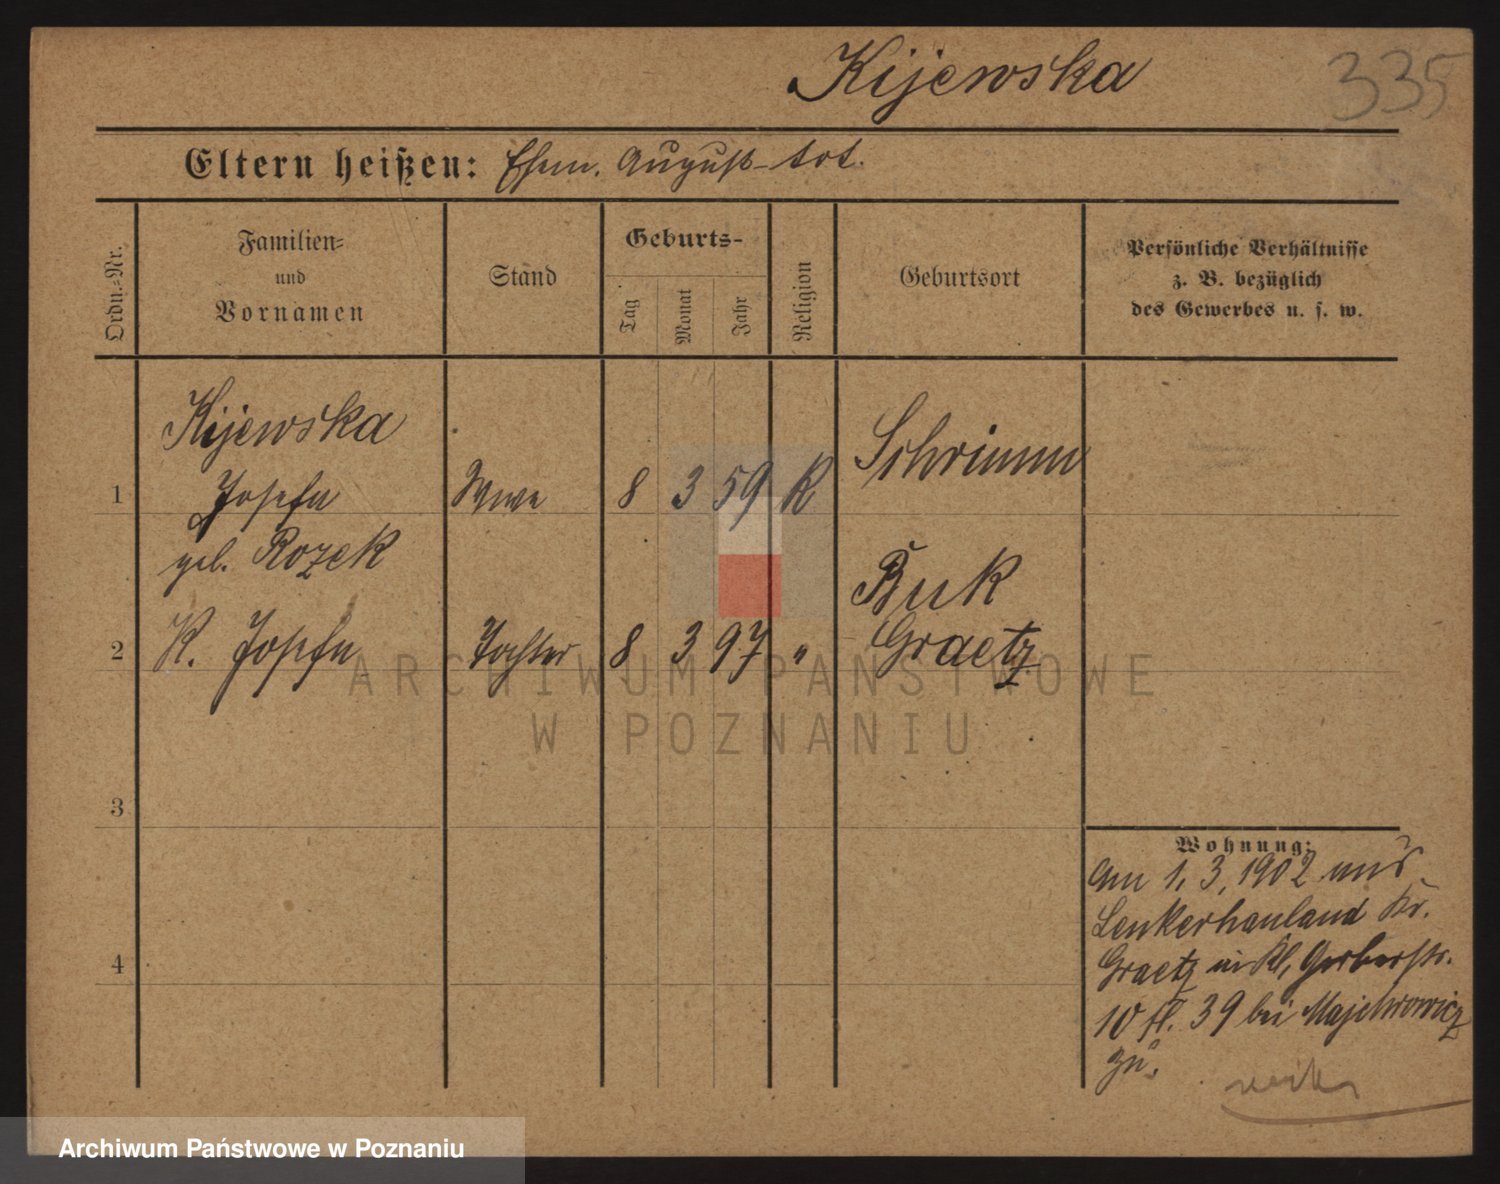 Kijewska
335
Eltern heißen: Ehem. August tot.
Ordn.-Nr.
Familien- und Vornamen
Stand
Geburts-
Tag
Monat
Jahr
Religion
Geburtsort
Persönliche Verhältnisse
z. B. bezüglich
des Gewerbes u. s. w.
Kijewska
1 Josefa Wwe 8 3 59 K Schrimm
geb. Rozek
Buk
2 K. Josefa Tochter 8 3 97 " Graetz
3
4
Wohnung:
Am 1. 3. 1902 aus
Lenkerhauland Kr.
Graetz in Kl. Gerberstr.
10 fl. 39 bei
zu.
ARCHIWUM PAŃSTWOWE
W POZNANIU
Archiwum Państwowe w Poznaniu